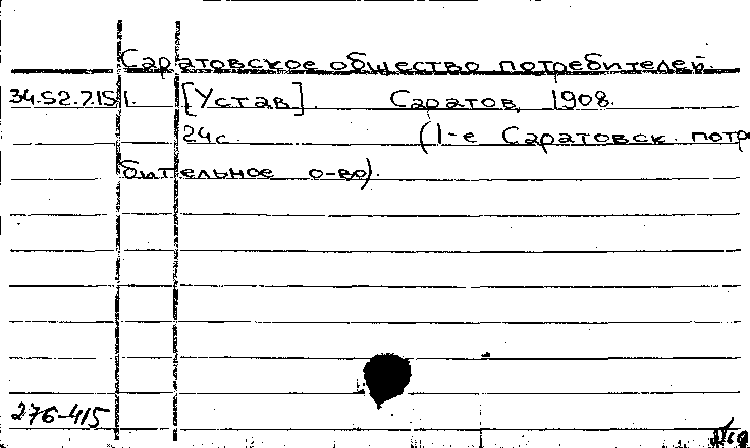 Саратовское общество потребителей.
34.52.7.15 1. [Устав]. Саратов, 1908.
24с. (1-е Саратовск. потре
бительное о-во).
276-415